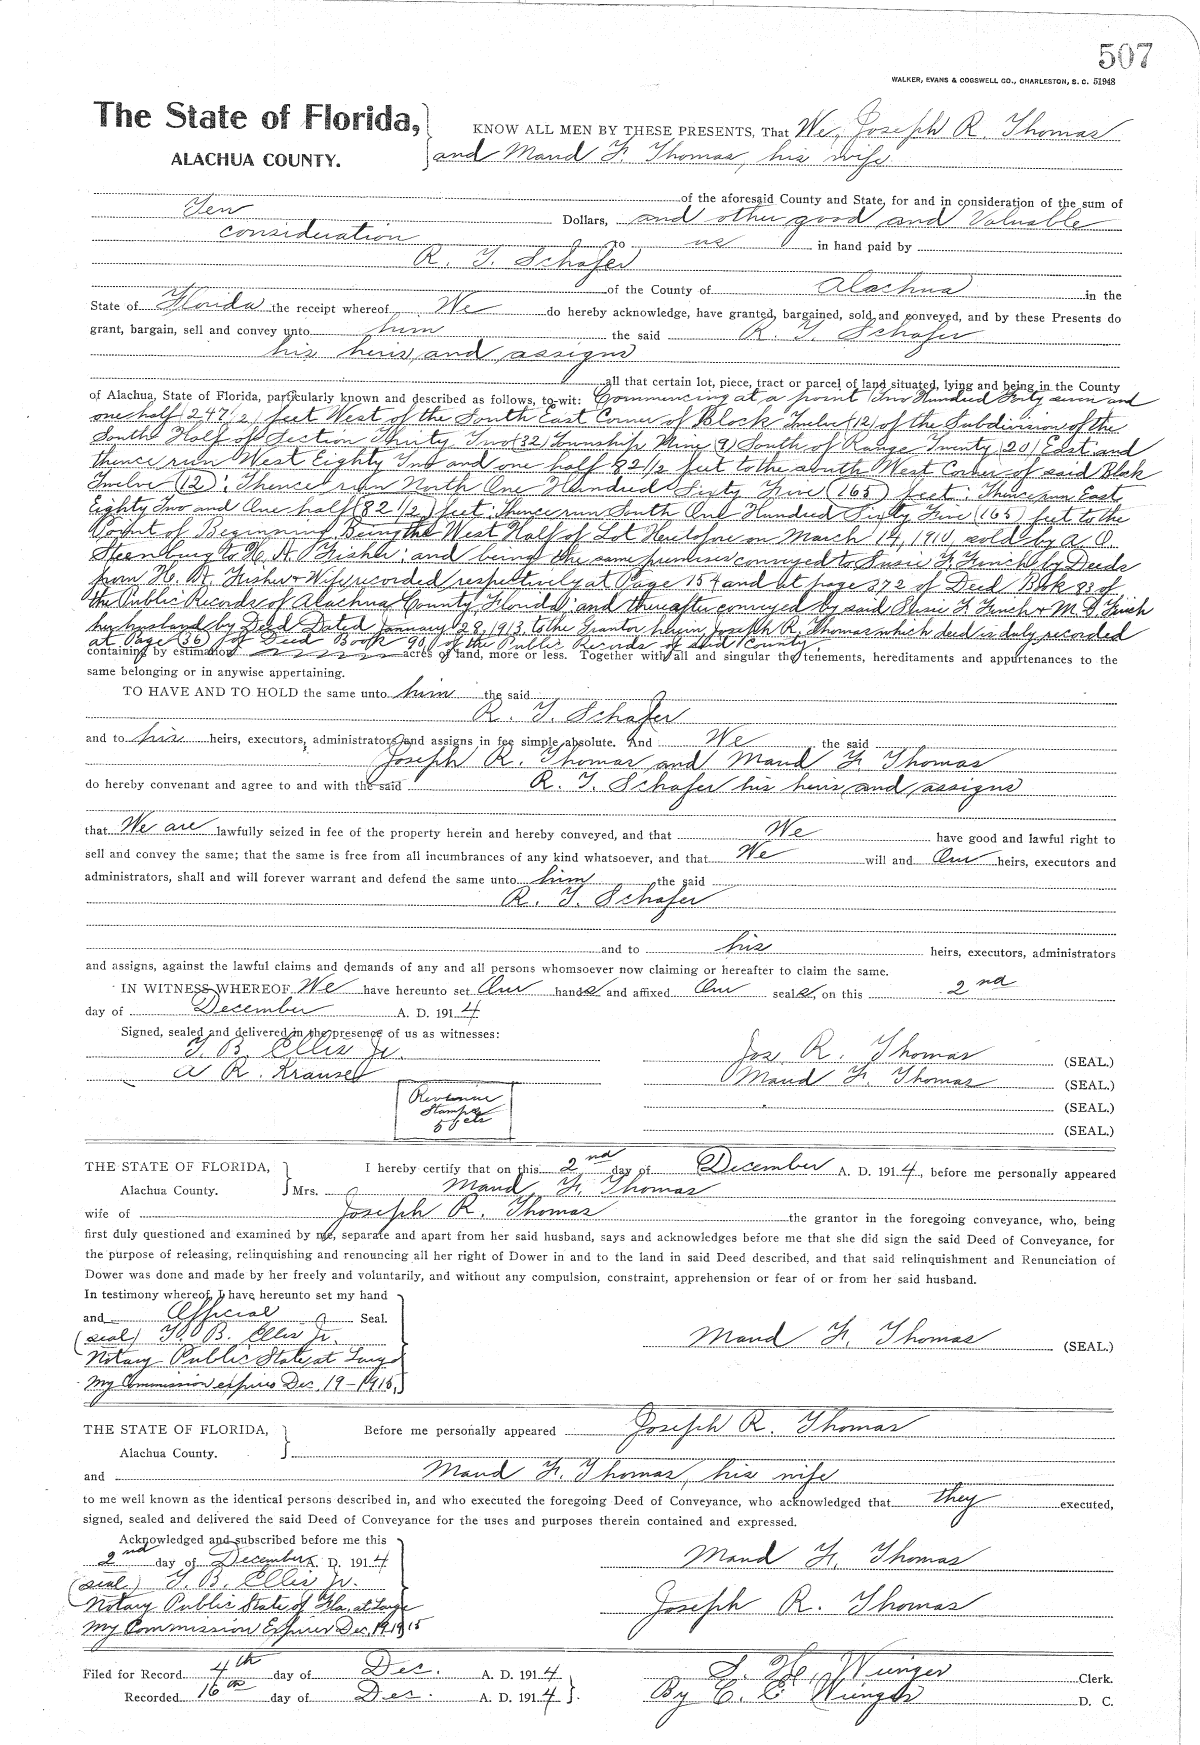 507
WALKER, EVANS & COGSWELL CO., CHARLESTON, S. C. 51948
The State of Florida,
KNOW ALL MEN BY THESE PRESENTS, That We, Joseph R. Thomas
ALACHUA COUNTY.
and Maud F. Thomas, his wife
of the aforesaid County and State, for and in consideration of the sum of
Ten Dollars, and other good and Valuable
consideration to us in hand paid by
R. T. Schafer
of the County of Alachua in the
State of Florida the receipt whereof We do hereby acknowledge, have granted, bargained, sold and conveyed, and by these Presents do
grant, bargain, sell and convey unto him the said R. T. Schafer
his heirs, and assigns
all that certain lot, piece, tract or parcel of land situated, lying and being in the County
of Alachua, State of Florida, particularly known and described as follows, to-wit: Commencing at a point Two Hundred Forty seven and
one half (247 1/2) feet West of the South East Corner of Block Twelve (12) of the Subdivision of the
South Half of Section Thirty Two (32) Township Nine (9) South of Range Twenty (20) East and
thence run West Eighty Two and one half 82 1/2 feet to the south West Corner of said Block
Twelve (12); Thence run North One Hundred Sixty Five (165) feet; Thence run East
Eighty Two and One half (82 1/2) feet; Thence run South One Hundred Sixty Five (165) feet to the
Point of Beginning Being the West Half of Lot Heretofore on March 14, 1910, sold by A. O.
Steenburg to H. A. Fisher; and being the same premises conveyed to Susie F. Finch by Deeds
from H. A. Fisher & Wife, recorded respectively at Page 154 and at page 372 of Deed Book 83 of
the Public Records of Alachua County, Florida; and thereafter conveyed by said Susie F. Finch & M. D. Finch
her husband by Deed Dated January 28, 1913, to the Grantor herein, Joseph R. Thomas which deed is duly recorded
at Page (36) of Deed Book 90, of the Public Records of said County.
containing by estimation acres of land, more or less. Together with all and singular the tenements, hereditaments and appurtenances to the
same belonging or in anywise appertaining.
TO HAVE AND TO HOLD the same unto him the said
R. T. Schafer
and to his heirs, executors, administrators and assigns in fee simple absolute. And We the said
Joseph R. Thomas and Maud F. Thomas
do hereby convenant and agree to and with the said R. T. Schafer his heirs, and assigns
that We are lawfully seized in fee of the property herein and hereby conveyed, and that We have good and lawful right to
sell and convey the same; that the same is free from all incumbrances of any kind whatsoever, and that We will and Our heirs, executors and
administrators, shall and will forever warrant and defend the same unto him the said
R. T. Schafer
and to his heirs, executors, administrators
and assigns, against the lawful claims and demands of any and all persons whomsoever now claiming or hereafter to claim the same.
IN WITNESS WHEREOF We have hereunto set Our hands and affixed Our seals, on this 2nd
day of December A. D. 1914
Signed, sealed and delivered in the presence of us as witnesses:
T. B. Ellis Jr.
Jos, R. Thomas (SEAL.)
A R. Krause
Maud F. Thomas (SEAL.)
(SEAL.)
(SEAL.)
Revenue
Stamps
cts
THE STATE OF FLORIDA,
Alachua County.
I hereby certify that on this 2nd day of December A. D. 1914, before me personally appeared
Mrs. Maud F. Thomas
wife of Joseph R. Thomas the grantor in the foregoing conveyance, who, being
first duly questioned and examined by me, separate and apart from her said husband, says and acknowledges before me that she did sign the said Deed of Conveyance, for
the purpose of releasing, relinquishing and renouncing all her right of Dower in and to the land in said Deed described, and that said relinquishment and Renunciation of
Dower was done and made by her freely and voluntarily, and without any compulsion, constraint, apprehension or fear of or from her said husband.
In testimony whereof, I have hereunto set my hand
and Official Seal.
(seal) T. B. Ellis Jr.
Maud F. Thomas (SEAL.)
Notary Public State at Large
My Commission expires Dec. 19-1915,
THE STATE OF FLORIDA,
Alachua County.
Before me personally appeared Joseph R. Thomas
and Maud F. Thomas, his wife
to me well known as the identical persons described in, and who executed the foregoing Deed of Conveyance, who acknowledged that they executed,
signed, sealed and delivered the said Deed of Conveyance for the uses and purposes therein contained and expressed.
Acknowledged and subscribed before me this
2nd day of December A. D. 1914
Maud F. Thomas
(seal) T. B. Ellis Jr.
Notary Public State of Fla, at Large
Joseph R. Thomas
My Commission Expires Dec, 19, 1915
Filed for Record 4th day of Dec. A. D. 1914
S. H. Wienges Clerk.
Recorded 16th day of Dec. A. D. 1914.
By C. E. Wienges D. C.